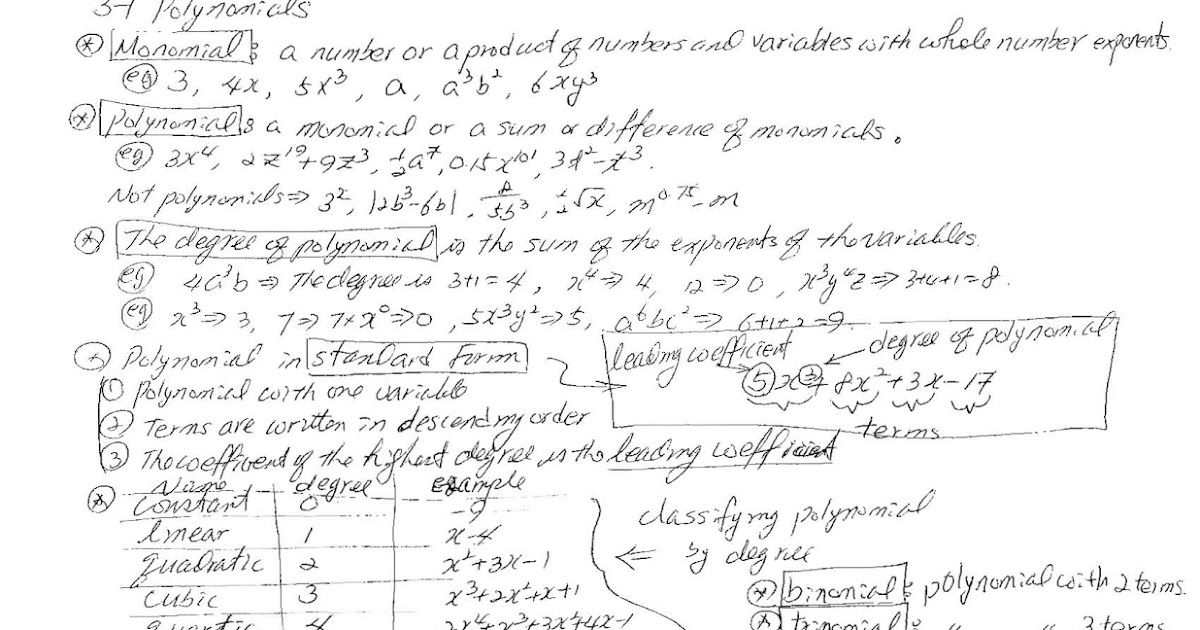 3-1 Polynomials
⊛ Monomial: a number or a product of numbers and variables with whole number exponents.
eg 3, 4x, 5x³, a, a³b², 6xy³
⊛ Polynomial: a monomial or a sum or difference of monomials.
eg 3x⁴, 2z¹⁹+9z³, ½a⁷, 0.15x¹⁰¹, 3t²-t³.
Not polynomials ⇒ 3ᶻ, |2b³-6b|, /5b³, ½√x, m^0.75-m
⊛ The degree of polynomial is the sum of the exponents of the variables.
eg 4a³b ⇒ The degree is 3+1=4, x⁴ ⇒ 4, 12 ⇒ 0, x³y⁴z ⇒ 3+4+1=8.
eg x³ ⇒ 3, 7 ⇒ 7+x⁰ ⇒ 0, 5x³y² ⇒ 5, a⁶bc² ⇒ 6+1+2=9
⊛ Polynomial in standard form
① Polynomial with one variable
② Terms are written in descending order
③ The coefficient of the highest degree is the leading coefficient
leading coefficient
degree of polynomial
5x³+8x²+3x-17
terms
⊛ Name degree example
constant 0 -9
linear 1 x-4
quadratic 2 x²+3x-1
cubic 3 x³+2x²+x+1
quartic 4 2x⁴+x³+3x²+4x-1
classifying polynomial
⇐ by degree
⊛ binomial: polynomial with 2 terms.
⊛ trinomial: " " 3 terms